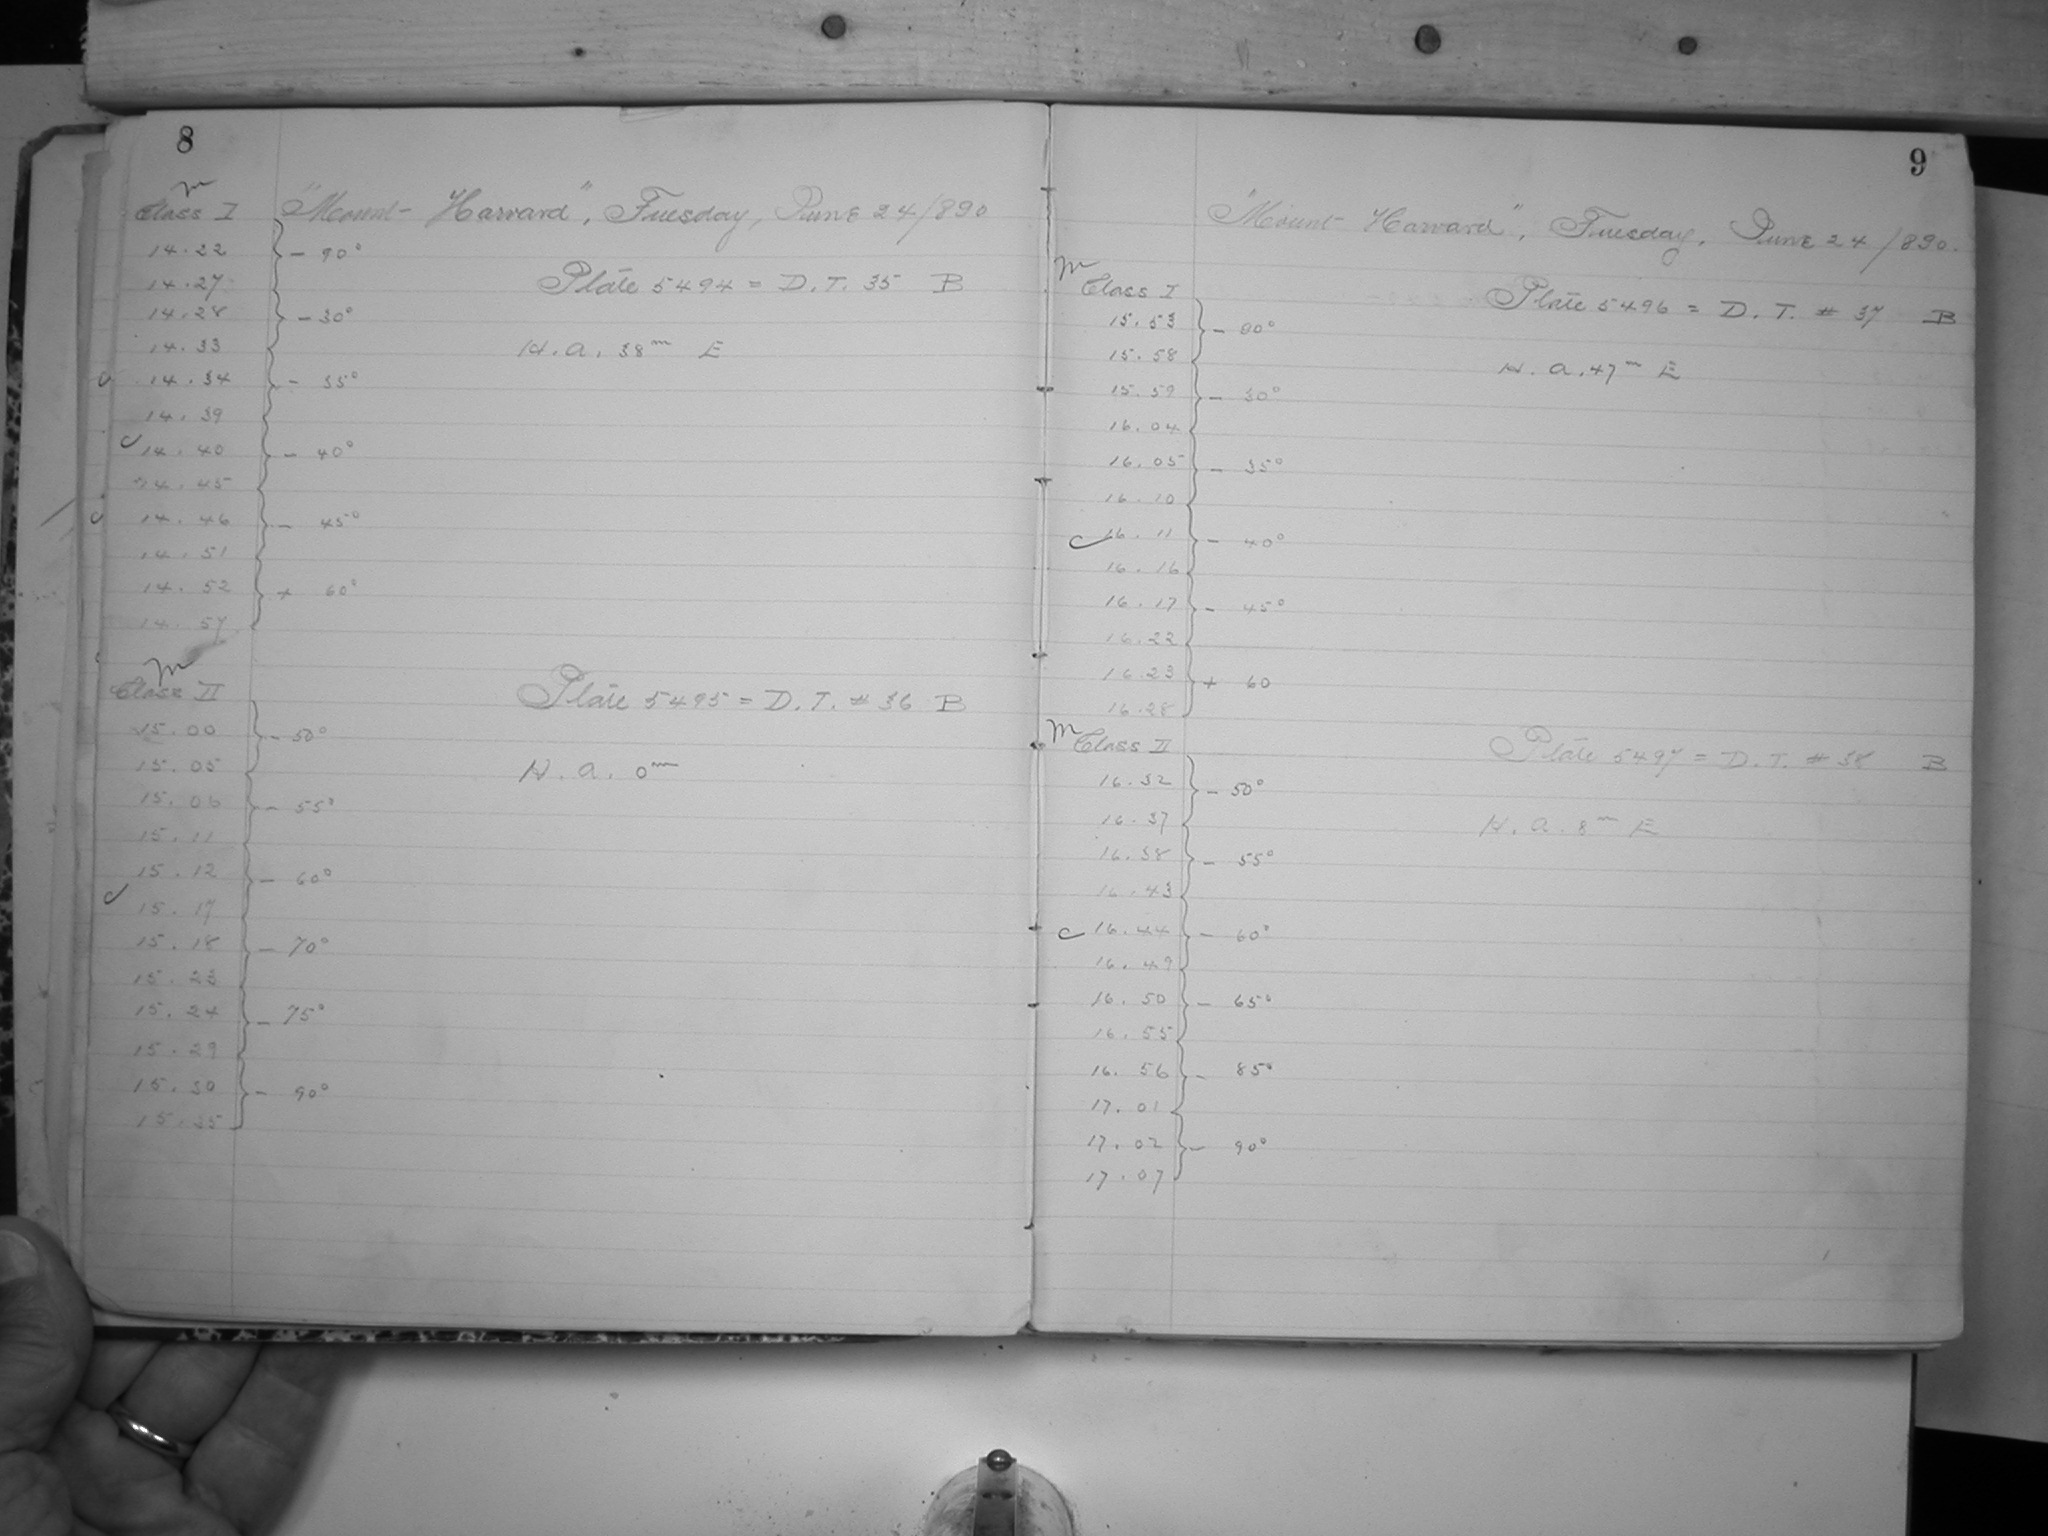 8
m
Class I "Mount Harvard", Tuesday, June 24/890
14.22 - 90°
14.27 Plate 5494 = D.T. 35 B
14.28 - 30°
14.33 H.a. 38m E
14.34 - 35°
14.39
14.40 - 40°
14.45
14.46 - 45°
14.51
14.52 + 60°
14.57
m
Class II Plate 5495 = D.T. # 36 B
15.00 - 50°
15.05 H.a. 0m
15.06 - 55°
15.11
15.12 - 60°
15.17
15.18 - 70°
15.23
15.24 - 75°
15.29
15.30 - 90°
15.35
9
"Mount Harvard", Tuesday, June 24/890.
m
Class I Plate 5496 = D.T. # 37 B
15.53 - 90°
15.58 H.a. 47m E
15.59 - 30°
16.04
16.05 - 35°
16.10
16.11 - 40°
16.16
16.17 - 45°
16.22
16.23 + 60
16.28
m
Class II Plate 5497 = D.T. # 38 B
16.32 - 50°
16.37 H.a. 8m E
16.38 - 55°
16.43
16.44 - 60°
16.49
16.50 - 65°
16.55
16.56 - 85°
17.01
17.02 - 90°
17.07